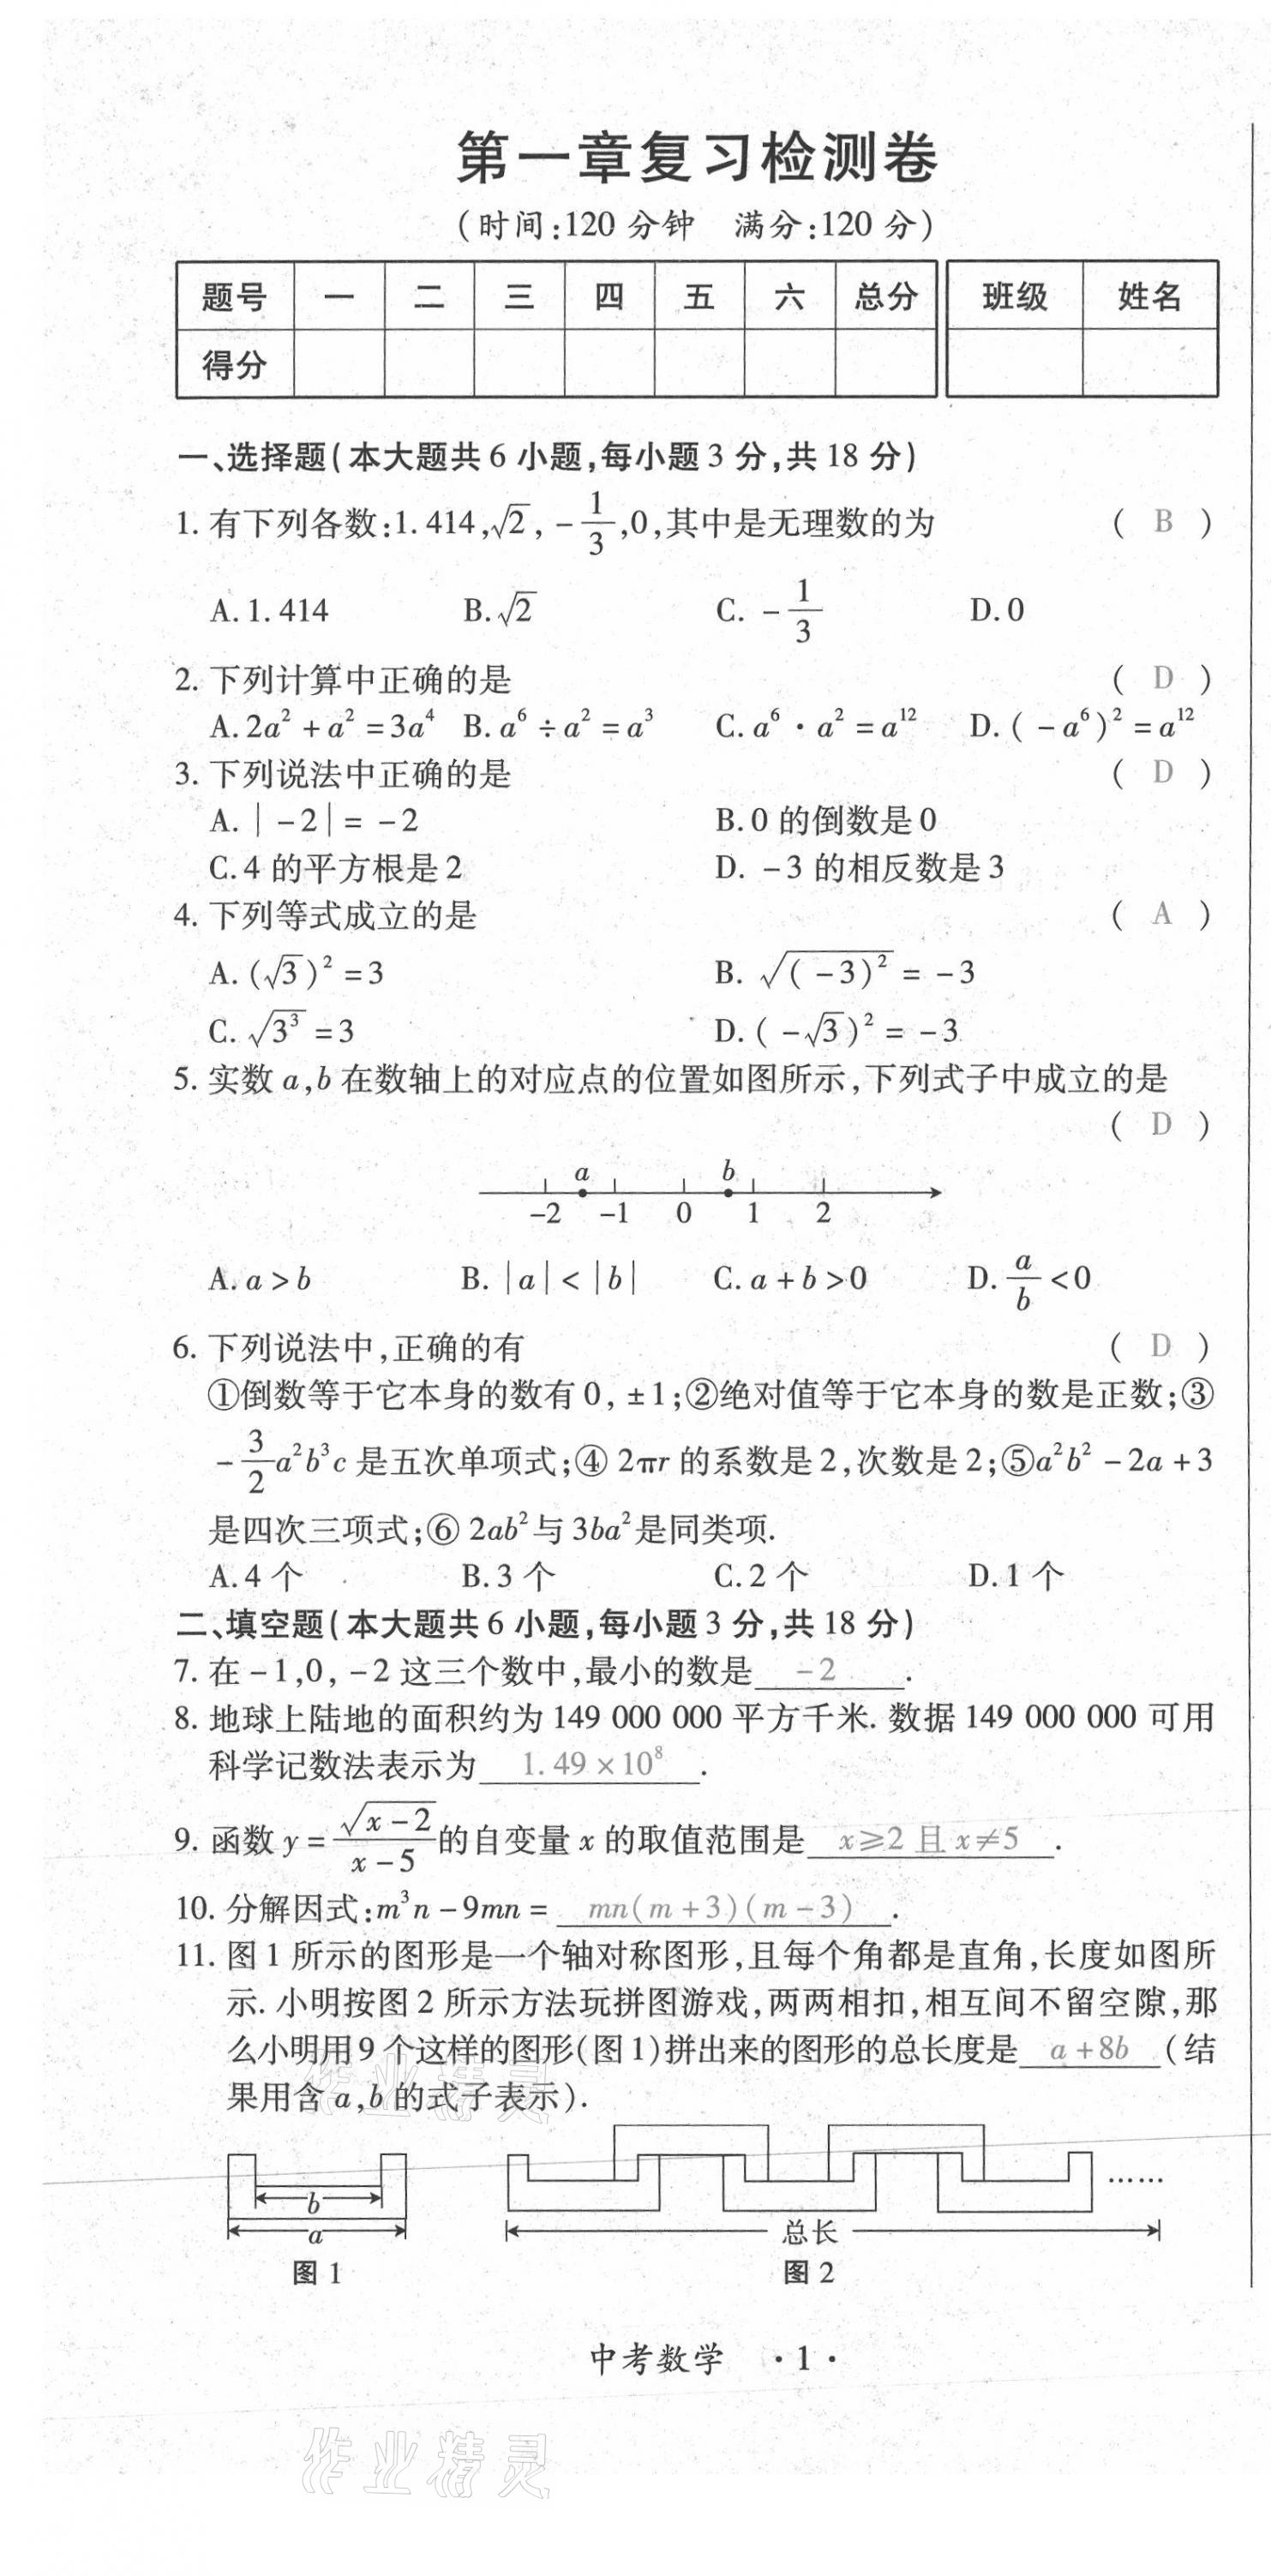 第一章复习检测卷
(时间:120分钟 满分:120分)
题号 一 二 三 四 五 六 总分 班级 姓名
得分
一、选择题(本大题共6小题,每小题3分,共18分)
1. 有下列各数:1.414,√2,-1/3,0,其中是无理数的为 ( B )
A. 1.414 B. √2 C. -1/3 D. 0
2. 下列计算中正确的是 ( D )
A. 2a²+a²=3a⁴ B. a⁶÷a²=a³ C. a⁶·a²=a¹² D. (-a⁶)²=a¹²
3. 下列说法中正确的是 ( D )
A. |-2|=-2 B. 0的倒数是0
C. 4的平方根是2 D. -3的相反数是3
4. 下列等式成立的是 ( A )
A. (√3)²=3 B. √(-3)²=-3
C. √3³=3 D. (-√3)²=-3
5. 实数a,b在数轴上的对应点的位置如图所示,下列式子中成立的是
( D )
a b
-2 -1 0 1 2
A. a>b B. |a|<|b| C. a+b>0 D. a/b<0
6. 下列说法中,正确的有 ( D )
①倒数等于它本身的数有0,±1;②绝对值等于它本身的数是正数;③
-3/2a²b³c是五次单项式;④2πr的系数是2,次数是2;⑤a²b²-2a+3
是四次三项式;⑥2ab²与3ba²是同类项.
A. 4个 B. 3个 C. 2个 D. 1个
二、填空题(本大题共6小题,每小题3分,共18分)
7. 在-1,0,-2这三个数中,最小的数是 -2 .
8. 地球上陆地的面积约为149 000 000平方千米. 数据149 000 000可用
科学记数法表示为 1.49×10⁸ .
9. 函数y=√(x-2)/(x-5)的自变量x的取值范围是 x≥2且x≠5 .
10. 分解因式:m³n-9mn= mn(m+3)(m-3) .
11. 图1所示的图形是一个轴对称图形,且每个角都是直角,长度如图所
示. 小明按图2所示方法玩拼图游戏,两两相扣,相互间不留空隙,那
么小明用9个这样的图形(图1)拼出来的图形的总长度是 a+8b (结
果用含a,b的式子表示).
作业精灵
b
a
……
总长
图1 图2
中考数学 ·1·
作业精灵